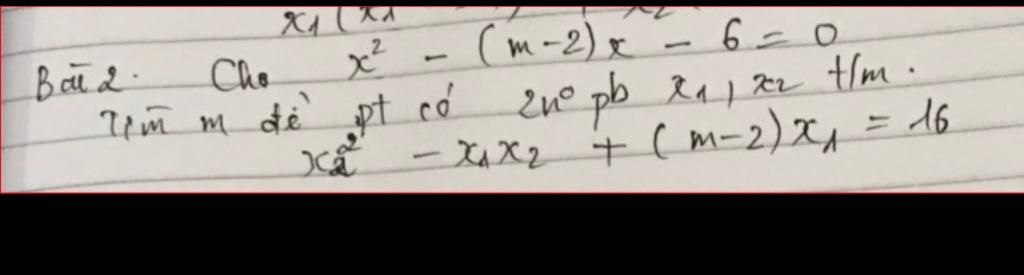 x₁(x₁
Bài 2. Cho x² - (m-2)x - 6 = 0
Tìm m để pt có 2n⁰ pb x₁, x₂ t/m.
x₂² - x₁x₂ + (m-2)x₁ = 16